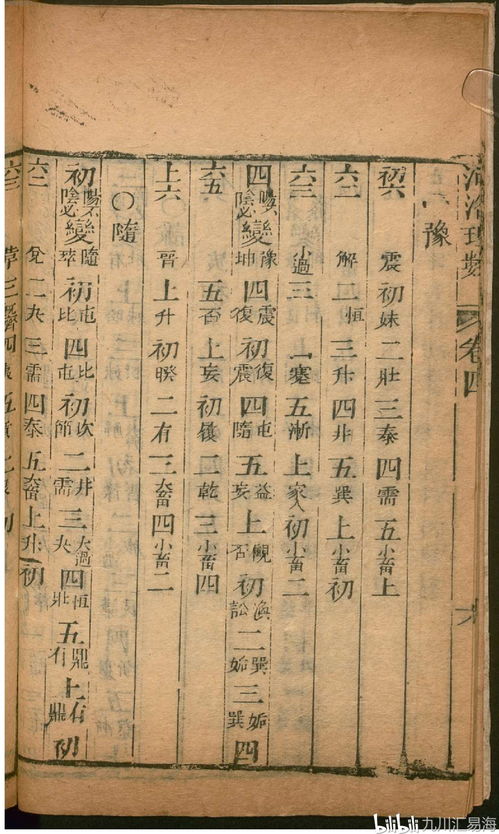 河洛理數 卷四
豫
初六 震初妹二壯三泰四需五小畜上
六二 解二恒三升四井五巽上小畜初
六三 小過三蹇五漸上家人初小畜二
四陽不陰必變豫坤四震復初復震四屯隨五益妄上觀否初渙訟二巽姤三姤巽四
六五 五否上妄初履二乾三小畜四
上六 晉上升初睽二有三大畜四小畜二
○隨
初陽不陰必變隨萃初屯比四比屯初坎節二井需三大過夬四恒壯五鼎有上有鼎初
六二 兌二夬三需四泰五大畜上升初
六三 革三
bilibili 九川汇易海